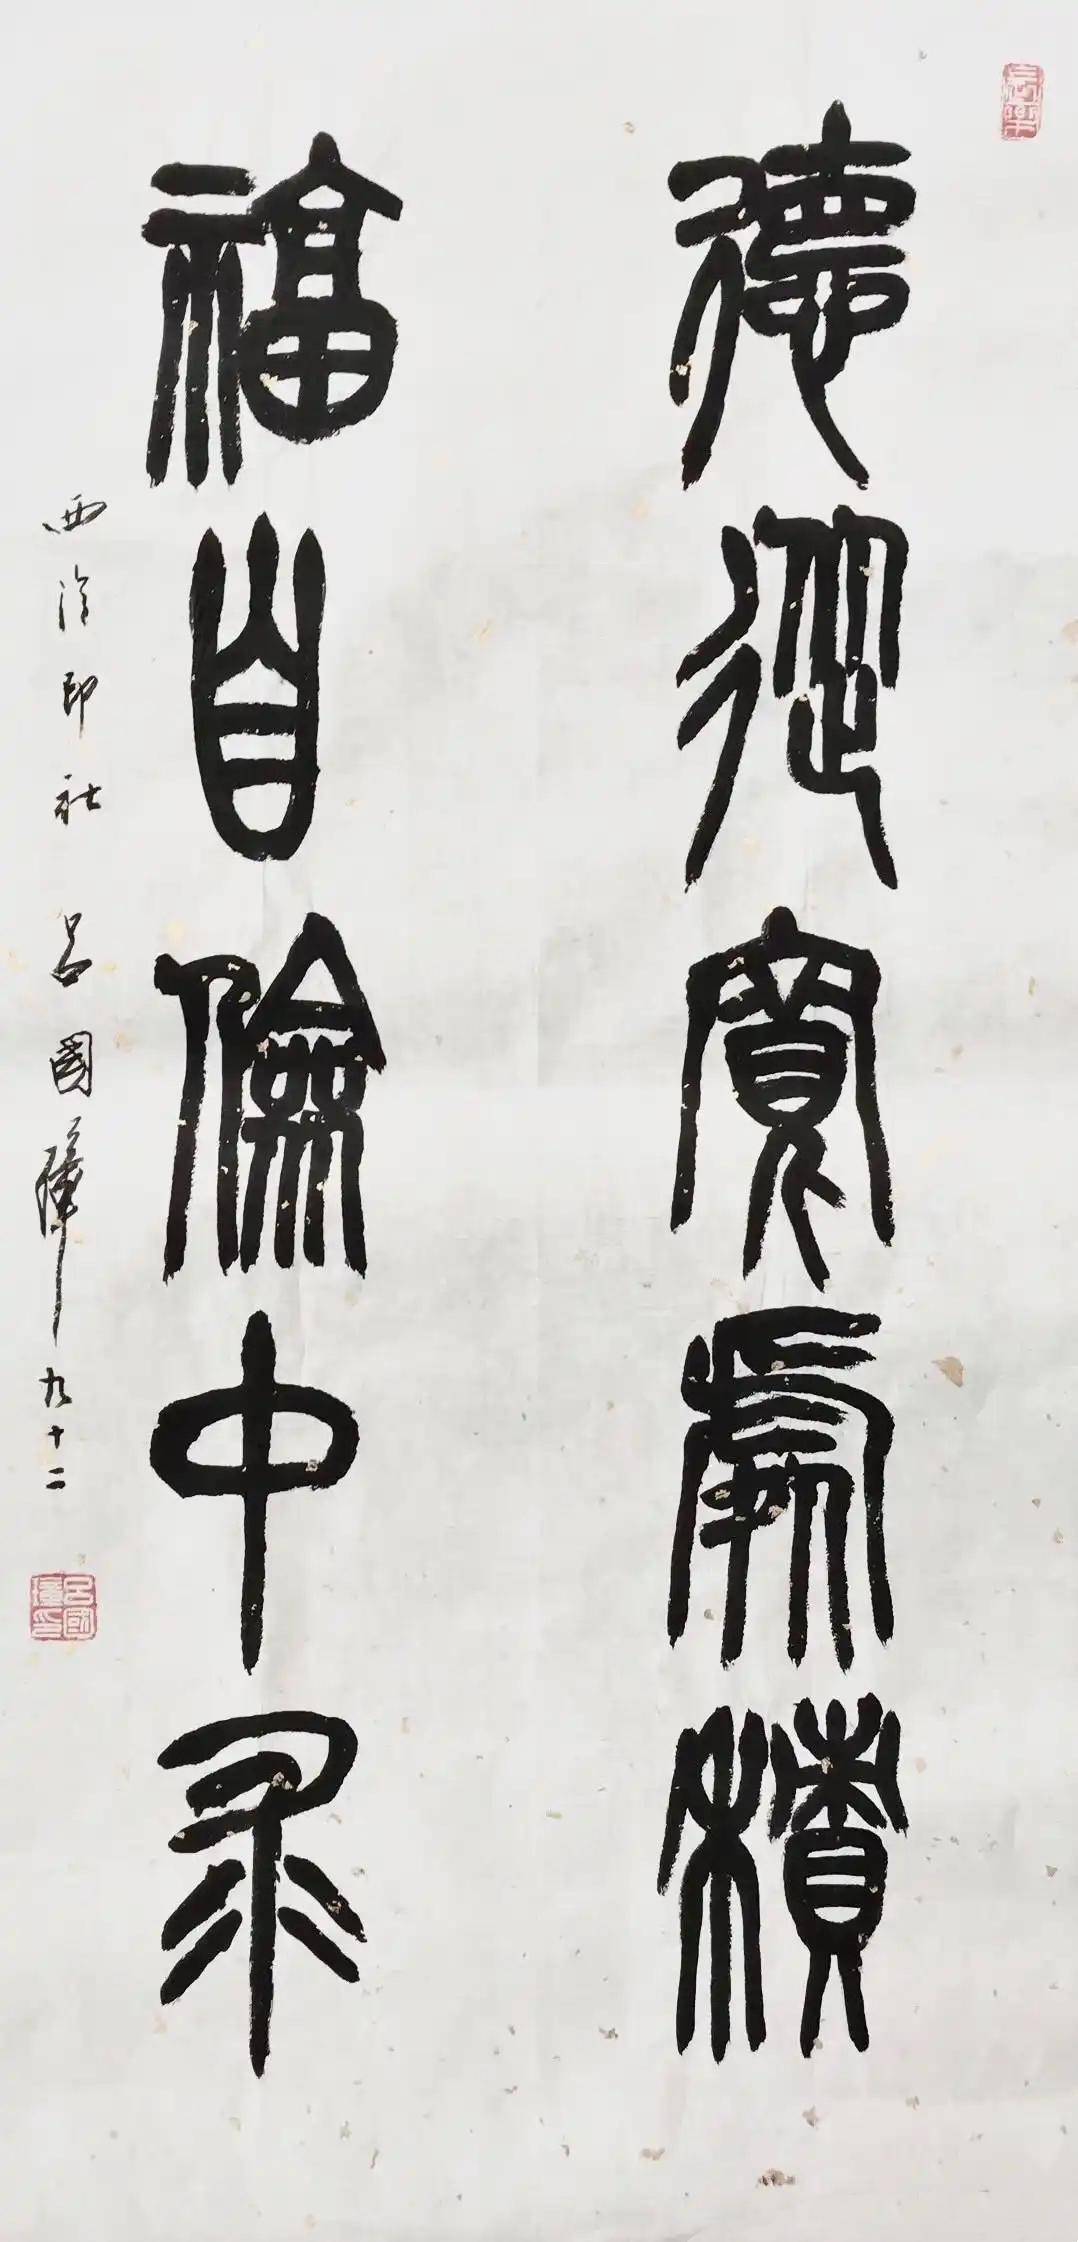 德從寬處積
福自儉中求
西泠印社 呂國璋 九十二
呂國璋印